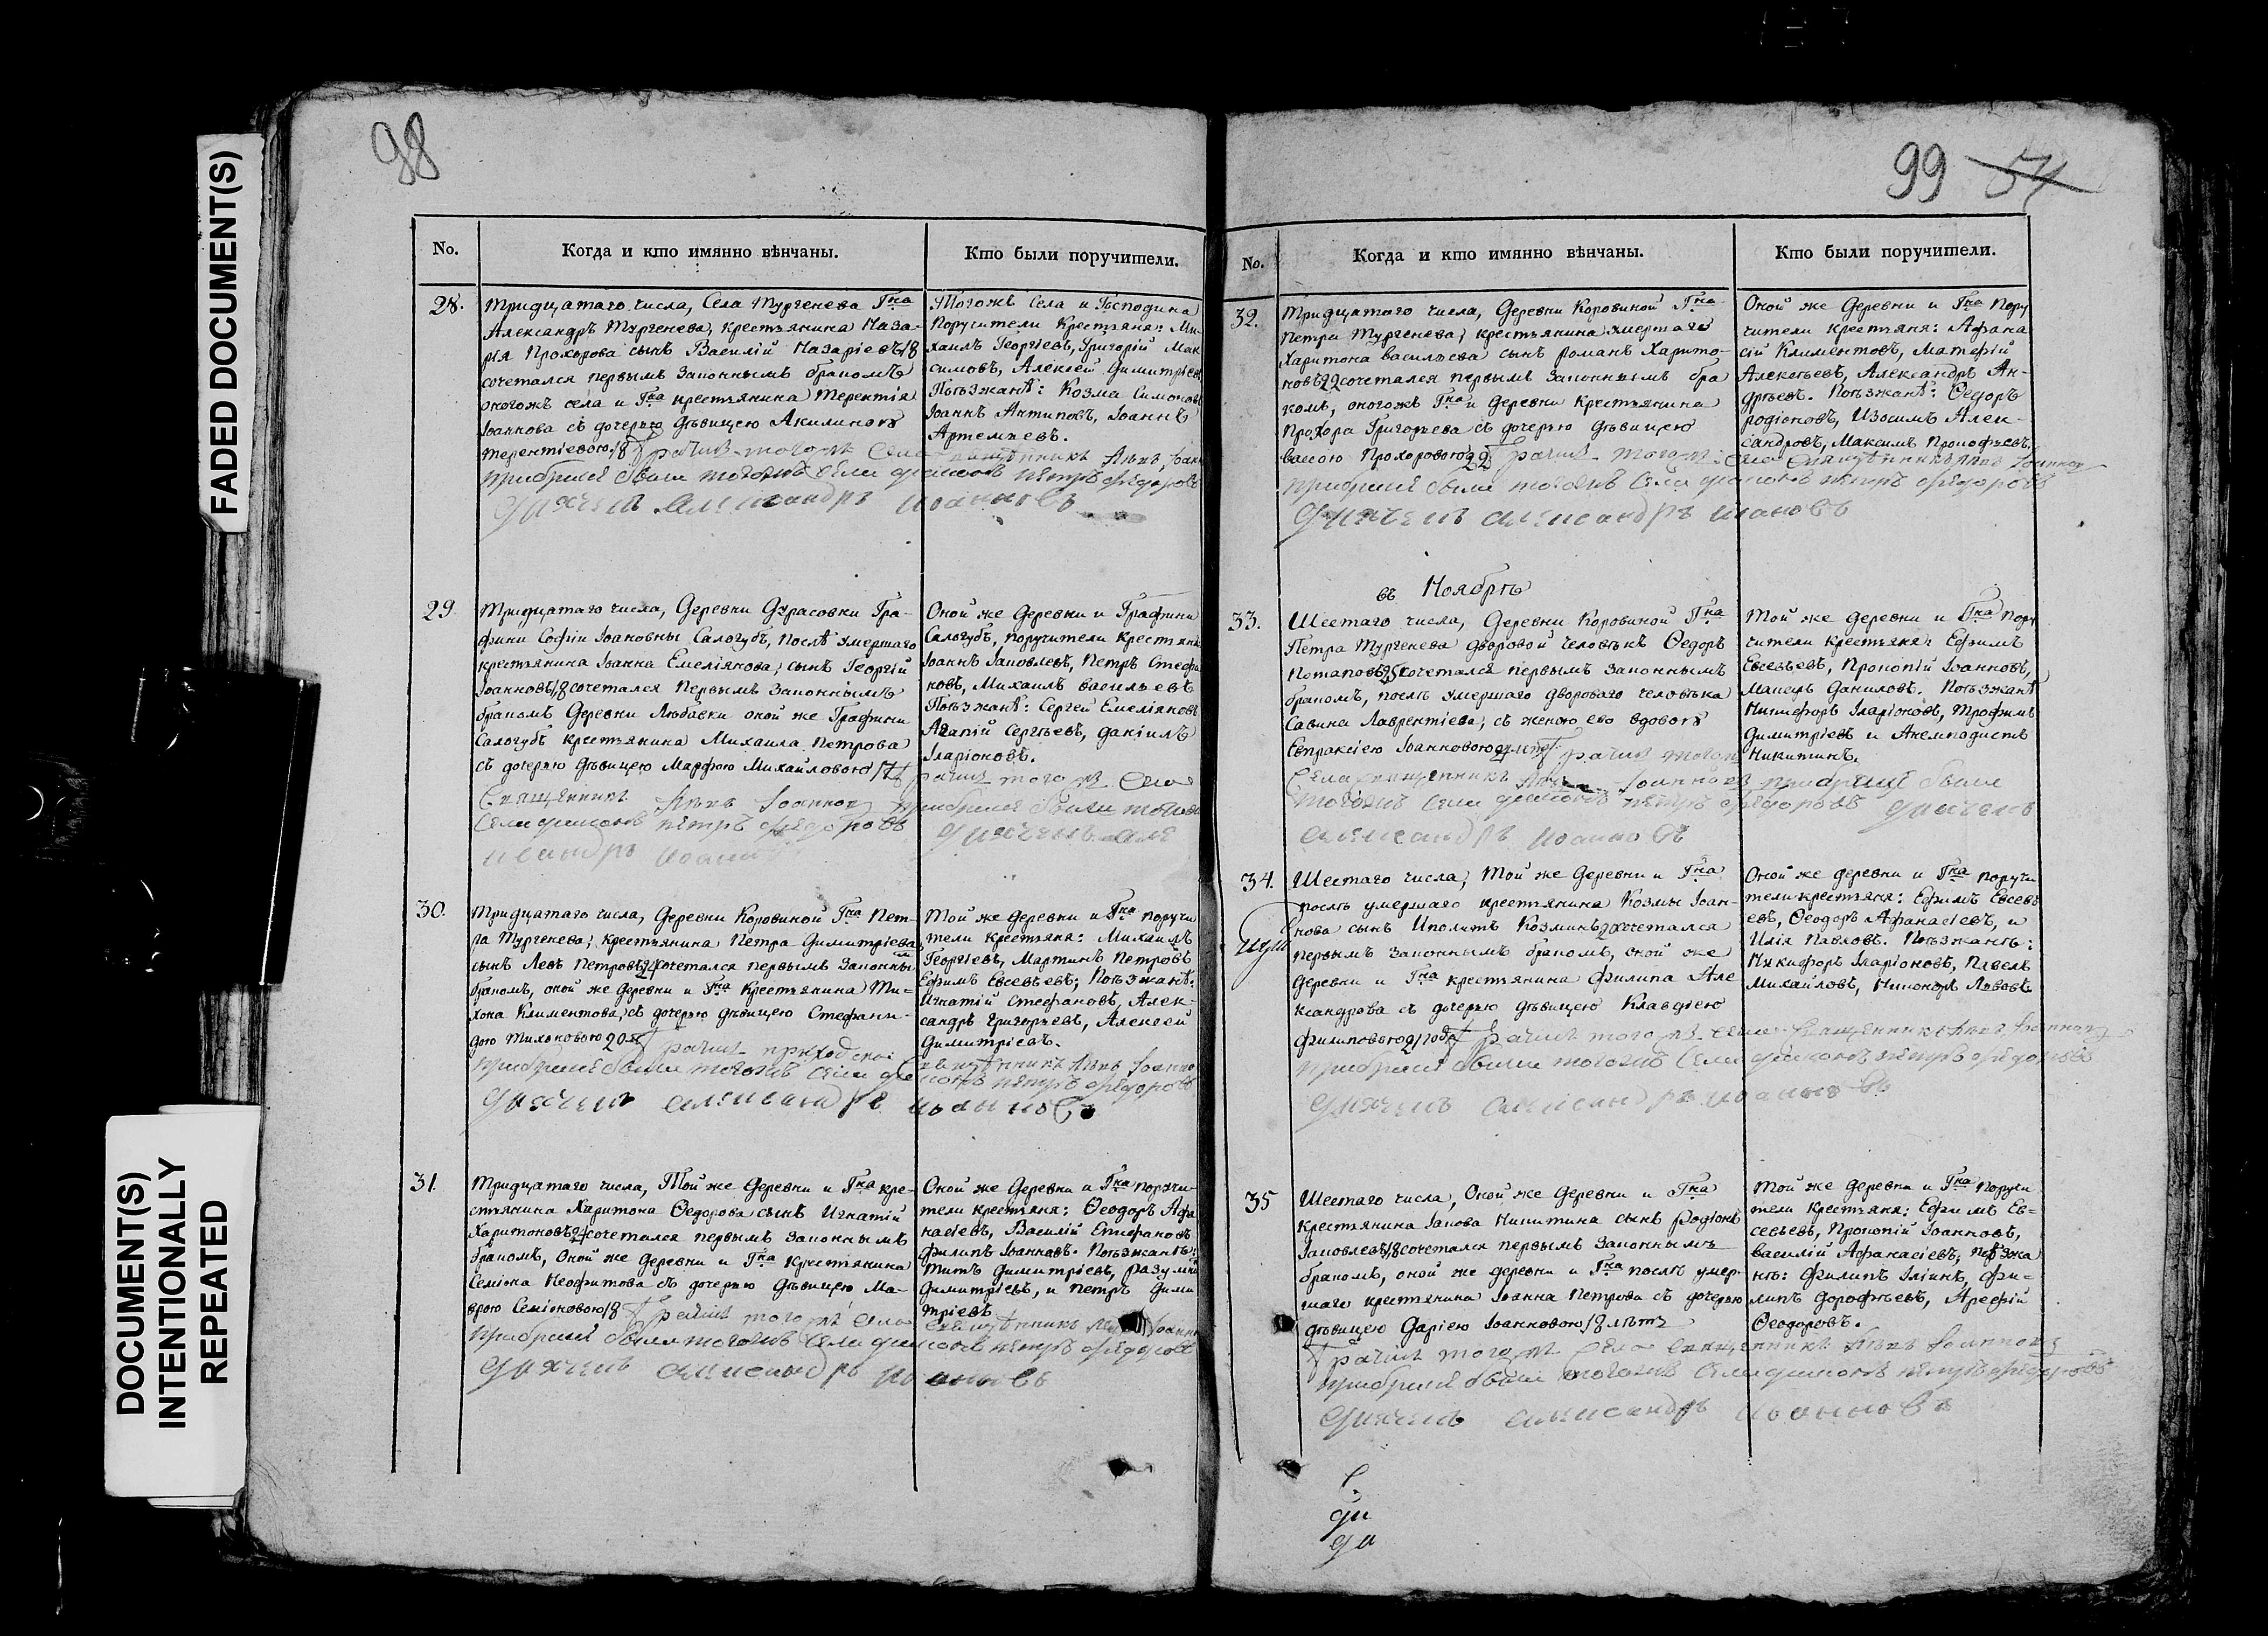 FADED DOCUMENT(S)
DOCUMENT(S)
INTENTIONALLY
REPEATED
98
No.
Когда и кто имянно вѣнчаны.
Кто были поручители.
28.
Тридцатаго числа, Села Тургенева Гна
Александръ Тургенева, крестьянина Наза-
рія Прохорова сынъ Василій Назаріевъ 18
сочетался первымъ законнымъ бракомъ
оногожъ села и Гна крестьянина Терентія
Іоаннова съ дочерью дѣвицею Акилиною
Терентіевою 18
Тогожъ Села и Господина
Поручители Крестьяня: Ми-
хаилъ Георгіевъ, Григорій Мак
симовъ, Алексѣй Димитріевъ
Поѣзжанѣ: Козма Симоновъ
Іоаннъ Антиповъ, Іоаннъ
Артемьевъ.
прибраке были тогожъ села диаконъ петръ федоровъ
дьячекъ александръ иоанновъ
29.
Тридцатаго числа, Деревни Дурасовки Гра-
фини Софіи Іоановны Салогубъ, послѣ умершаго
крестьянина Іоанна Емеліянова, сынъ Георгій
Іоанновъ 18 сочетался первымъ законнымъ
бракомъ Деревни Любавки оной же Графини
Салогубъ крестьянина Михаила Петрова
съ дочерью дѣвицею Марфою Михайловою 17
Оной же Деревни и Графини
Салогубъ, поручители Крестьяня
Іоаннъ Іаковлевъ, Петръ Стефа
новъ, Михаилъ Васильевъ
Поѣзжанѣ: Сергей Емеліяновъ
Агапій Сергѣевъ, Даніилъ
Іларіоновъ.
Священникъ Іоанновъ прибраке были тогожъ
Села диаконъ петръ федоровъ дьячекъ але
ксандръ иоаннов
30.
Тридцатаго числа, Деревни Коровиной Гна Пет-
ра Тургенева, Крестьянина Петра Димитріева
сынъ Левъ Петровъ 24 сочетался первымъ законны
бракомъ, оной же деревни и Гна Крестьянина Ти-
хона Климентова, съ дочерью дѣвицею Стефани-
дою Тихоновою 20
Той же деревни и Гна поручи
тели крестьяня: Михаилъ
Георгіевъ, Мартинъ Петровъ
Ефимъ Евсевьевъ; Поѣзжанѣ:
Игнатій Стефановъ, Алек-
сандръ Григорьевъ, Алексѣй
Димитріевъ.
прибраке были тогожъ села диаконъ петръ федоровъ
дьячекъ александръ иоанновъ
31.
Тридцатаго числа, Той же Деревни и Гна кре-
стьянина Харитона Ѳедорова сынъ Игнатій
Харитоновъ 24 сочетался первымъ законнымъ
бракомъ, Оной же Деревни и Гна Крестьянина
Семіона Неофитова съ дочерью дѣвицею Ма-
врою Семіоновою 18
Оной же Деревни и Гна поручи-
тели крестьяня: Ѳеодоръ Афа
насіевъ, Василій Епифановъ
Филипъ Іоанновъ. Поѣзжанѣ:
Титъ Димитріевъ, Разумни
Димитріевъ, и Петръ Дими
тріевъ
прибраке были тогожъ села диаконъ петръ федоровъ
дьячекъ александръ иоанновъ
99 54
No.
Когда и кто имянно вѣнчаны.
Кто были поручители.
32.
Тридцатаго числа, Деревни Коровиной Гна
Петра Тургенева, крестьянина умершаго
Харитона Васильева сынъ Романъ Харито-
новъ 22 сочетался первымъ законнымъ бра
комъ, оногожъ Гна и деревни Крестьянина
Прохора Григорьева съ дочерью дѣвицею
Прохоровою 22
Оной же Деревни и Гна Пору
чители крестьяня: Афана
сій Климентовъ, Матфій
Алекѣевъ, Александръ Ан-
дрѣевъ. Поѣзжанѣ: Ѳедоръ
Родіоновъ, Изосимъ Алек-
сандровъ, Максимъ Прокофьевъ,
прибраке были тогожъ села диаконъ петръ федоровъ
дьячекъ александръ иоановъ
въ Ноябрѣ
33.
Шестаго числа, Деревни Коровиной Гна
Петра Тургенева дворовой человѣкъ Ѳедоръ
Потаповъ 25 сочетался первымъ законнымъ
бракомъ, послѣ умершаго двороваго человѣка
Савина Лаврентіева, съ женою его вдовою
Евпраксіею Іоанновою
Той же деревни и Гна пору
чители крестьяня: Ефимъ
Евсевьевъ, Прокопій Іоанновъ,
Макеръ Даниловъ. Поѣзжанѣ
Никифоръ Іларіоновъ, Трофимъ
Димитріевъ и Акемподистъ
Никитинъ.
Села священникъ Іоанновъ прибраке были
тогожъ села диаконъ петръ федоровъ дьячекъ
александръ иоанновъ
34.
Шестаго числа, Той же Деревни и Гна
послѣ умершаго крестьянина Козмы Іоан-
нова сынъ Иполитъ Козминъ 20 сочетался
первымъ законнымъ бракомъ, оной же
деревни и Гна крестьянина Филипа Але
ксандрова съ дочерью дѣвицею Клавдіею
Филиповою 21 года
Оной же деревни и Гна поручи
тели крестьяня: Ефимъ Евсевь
евъ, Ѳеодоръ Афанасіевъ, и
Илія Павловъ. Поѣзжанѣ:
Никифоръ Іларіоновъ, Павелъ
Михайловъ, Никоноръ Львовъ
прибраке были тогожъ села диаконъ петръ федоровъ
дьячекъ александръ иоанновъ
35
Шестаго числа, Оной же Деревни и Гна
крестьянина Іакова Никитина сынъ Родіонъ
Іаковлевъ 18 сочетался первымъ законнымъ
бракомъ, оной же деревни и Гна послѣ умер-
шаго крестьянина Іоанна Петрова съ дочерью
дѣвицею Даріею Іоанновою 18 лѣтъ
Той же деревни и Гна Поручи
тели Крестьяня: Ефимъ Ев-
севьевъ, Прокопій Іоанновъ,
Василій Афанасіевъ, Поѣзжа
нѣ: Филипъ Іліинъ, Фи-
липъ Дорофѣевъ, Арефій
Ѳеодоровъ.
тогожъ села священникъ Іоанновъ
прибраке были тогожъ села диаконъ петръ федоровъ
дьячекъ александръ иоанновъ